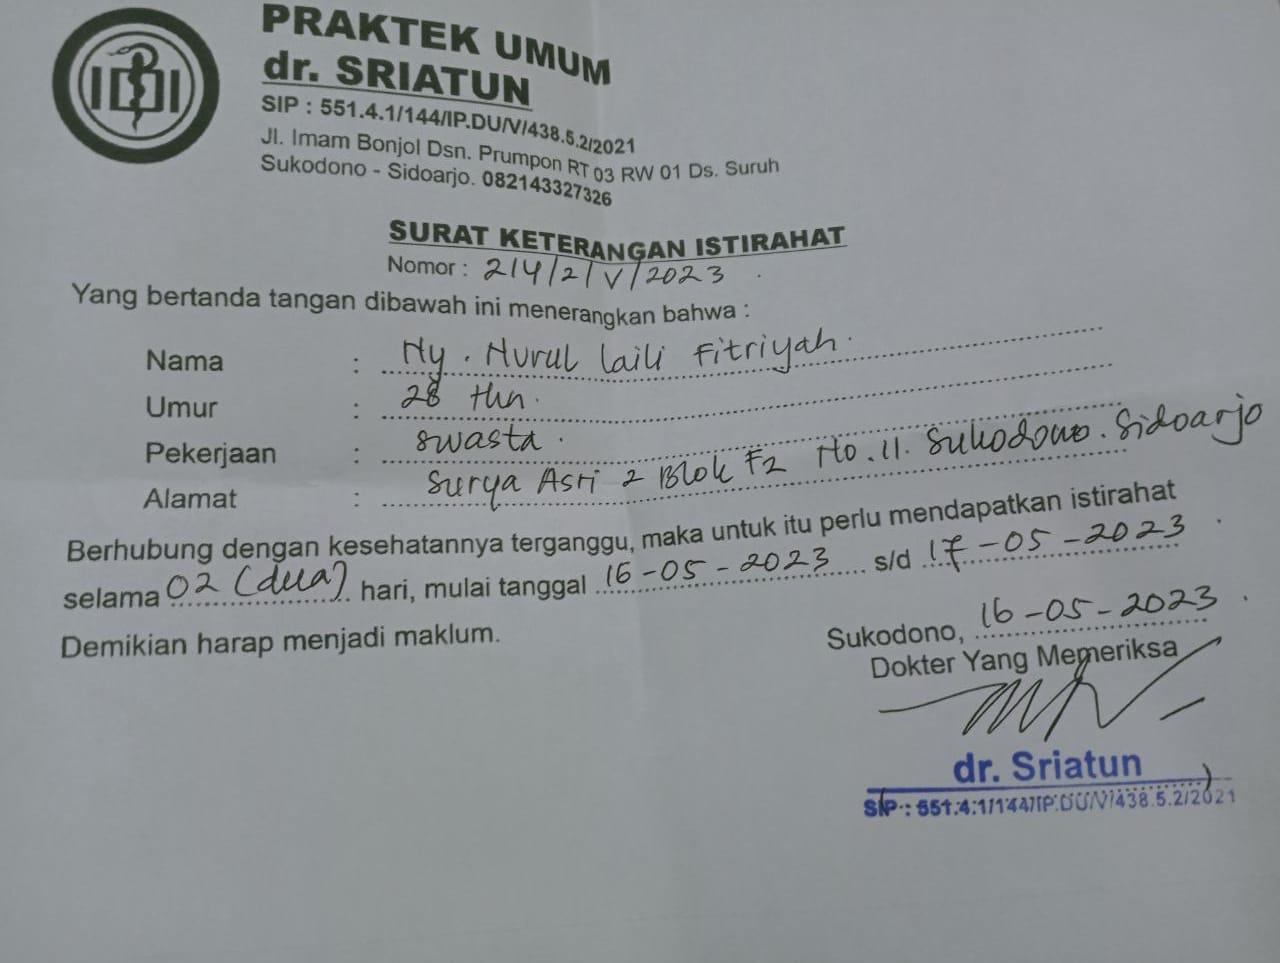 IDI
PRAKTEK UMUM
dr. SRIATUN
SIP : 551.4.1/144/IP.DU/V/438.5.2/2021
Jl. Imam Bonjol Dsn. Prumpon RT 03 RW 01 Ds. Suruh
Sukodono - Sidoarjo. 082143327326
SURAT KETERANGAN ISTIRAHAT
Nomor : 214/2/V/2023
Yang bertanda tangan dibawah ini menerangkan bahwa :
Nama : Ny. Nurul laili Fitriyah.
Umur : 28 thn.
Pekerjaan : swasta.
Alamat : Surya Asri 2 Blok F2 No.11. Sukodono. Sidoarjo
Berhubung dengan kesehatannya terganggu, maka untuk itu perlu mendapatkan istirahat
selama 02 (dua) hari, mulai tanggal 16-05-2023 s/d 17-05-2023
Demikian harap menjadi maklum.
Sukodono, 16-05-2023
Dokter Yang Memeriksa
dr. Sriatun
SIP : 551.4.1/144/IP.DU/V/438.5.2/2021